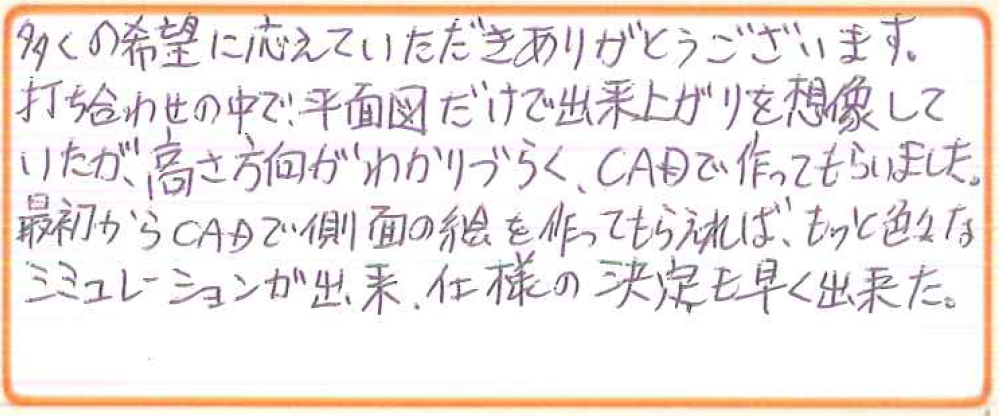 多くの希望に応えていただきありがとうございます。
打ち合わせの中で、平面図だけで出来上がりを想像して
いたが、高さ方向がわかりづらく、CADで作ってもらいました。
最初からCADで側面の絵を作ってもらえれば、もっと色々な
シミュレーションが出来、仕様の決定も早く出来た。